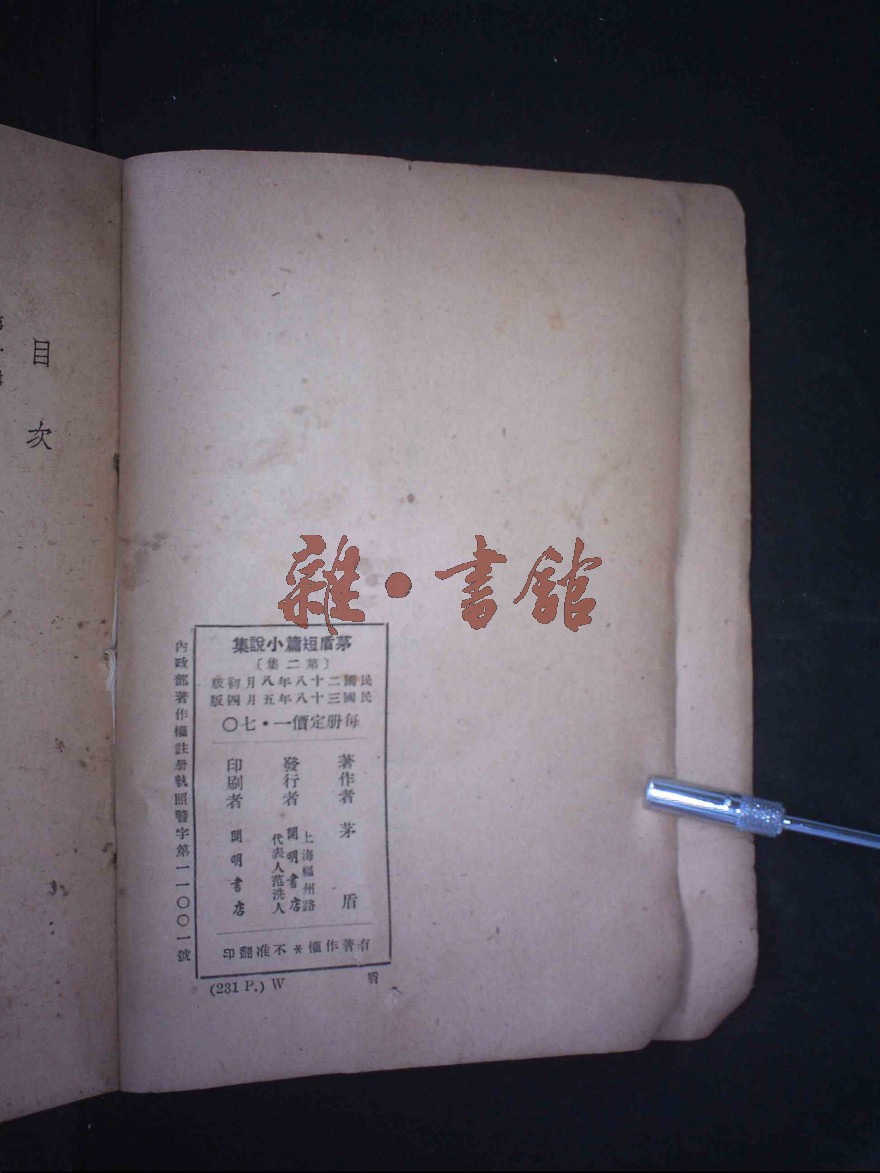 目次
雜·書館
茅盾短篇小說集
〔第二集〕
民國二十八年八月初版
民國三十八年五月四版
每册定價一·七〇
著作者 茅盾
發行者
上海福州路
開明書店
代表人范洗人
印刷者 開明書店
有著作權*不准翻印
內政部著作權註册執照警字第一一〇〇一號
(231 P.) W
盾